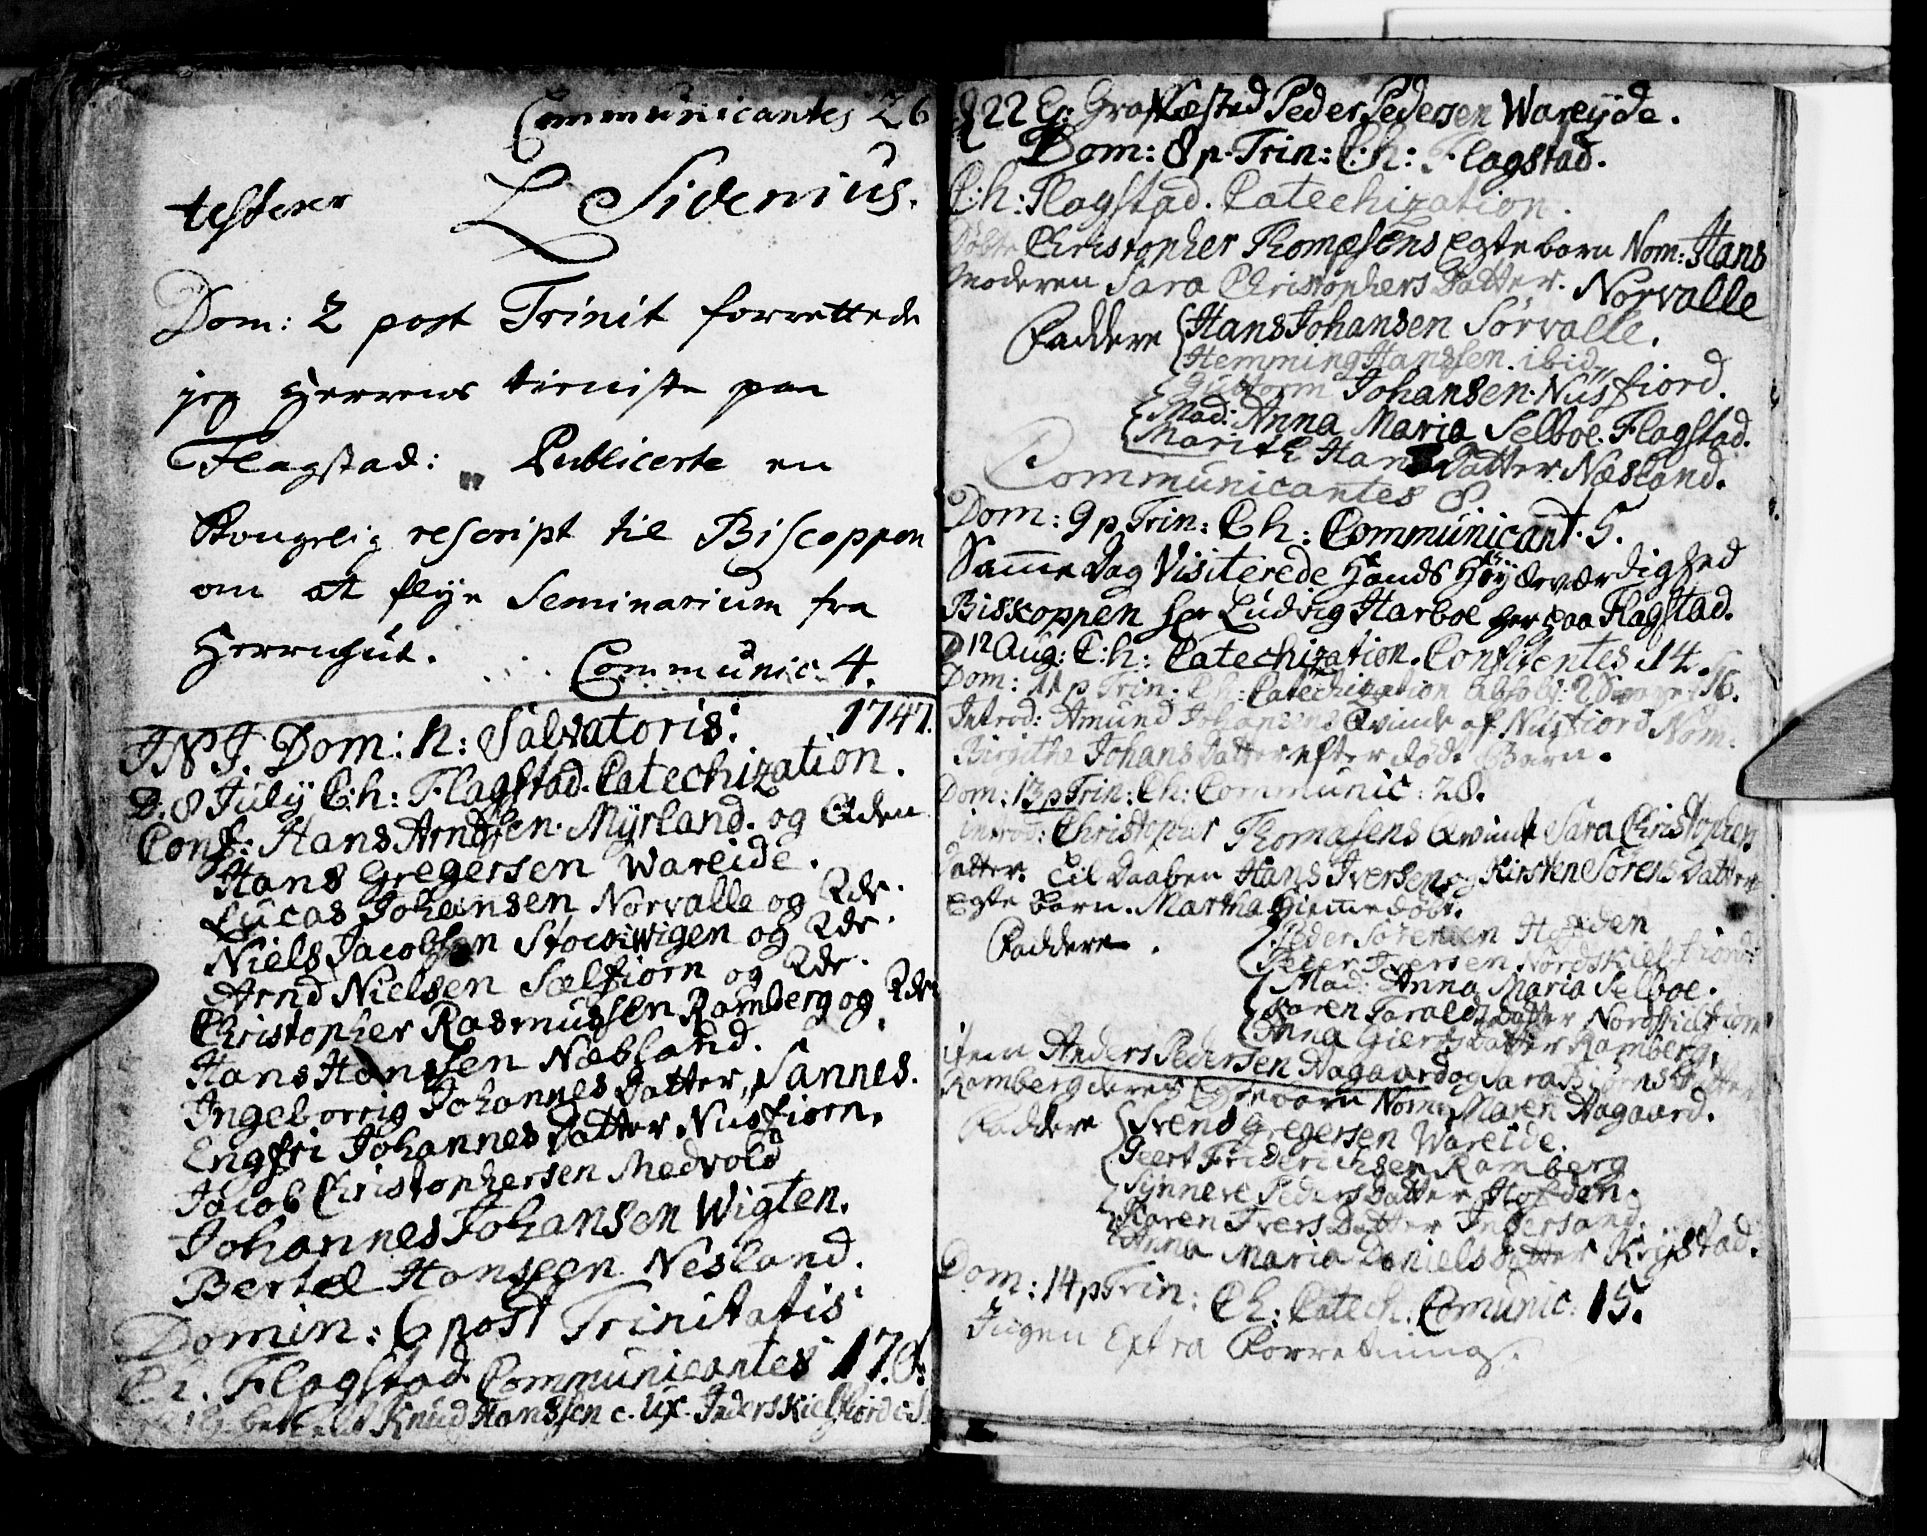 Communicantes 26
testerer L Sidenius.
Dom: 2 post Trinit forrettede
jeg Herrens tieniste paa
Flagstad: Publicerte en
Kongelig rescript til Biscoppen
om at flye Seminarium fra
Herrnhut.
Communic. 4.
J N J. Dom: n: Salvatoris: 1747.
D: 8 Julij C:h: Flagstad. Catechization.
Conf: Hans Arndsen Myrland. og
Hans Gregersen Wareide.
Lucas Johansen Norvalle og Qde.
Niels Jacobsen og Qde.
Arnd Nielsen Selfiorn og Qde.
Christopher Rasmussen Ramberg og Qde
Hans Hanssen Næsland.
Ingeborrig Johannes Datter, Sannes.
Engfri Johannes Datter Nusfiorn.
Jacob Christophersen Medvold
Johannes Johansen Wigten.
Bertel Hanssen Nesland.
Domin: 6 post Trinitatis
Ch. Flagstad Communicantes 17.
Knud Hanssen c. ux. Inderskielfiord
d 22 Ej: Grafæsted Peder Pedersen Wareijde.
Dom: 8 p. Trin: C:h: Flagstad.
C:h: Flagstad. Catechization.
Døbte Christopher Thomesens Egte barn Nom: Hans
Moderen Sara Christophers Datter. Norvalle
Faddere Hans Johansen Sørvalle.
Hemming Hanssen. ibid
Guttorm Johansen. Nusfiord.
Mad: Anna Maria Selboe. Flagstad.
Marith Hans Datter Næsland.
Communicantes 8
Dom: 9 p. Trin: C h: Communicant. 5.
Samme Dag Visiterede Hands Høyærværdighed
Biskoppen Hr Ludvig Harboe her paa Flagstad.
D 12 Aug: C:h: Catechization. Confitentes 14.
Dom: 11 p Trin: Ch: Catechization 16.
Introd: Amund Johansens Qvinde af Nusfiord Nom.
Birgithe Johans Datter efter død Barn.
Dom: 13 p Trin: Ch: Communic: 28.
introd: Christopher Thomasens Qvinde Sara Christophers
Datter. Til Daaben Hans Iversen og Kirstene Sørens Datter
Egte Barn. Martha hiemmedøbt.
Faddere. Peder Sørensen Hofden
Peder Iversen Nordskielfiord:
Mad: Anna Maria Selboe.
Karen Taralds Datter Nordskielfiord
Anna Gierts Datter Ramberg.
item Anders Pedersen Aagaard og Sara Biørns Datter
Ramberg deres Egte barn Nom: Maren Aagaard.
Faddere Svend Gregersen Wareide.
Geert Friderichsen Ramberg
Synneve Peders Datter Hofden.
Karen Ivers Datter Indersand.
Anna Maria Daniels Datter Krystad.
Dom: 14 p Trin: Ch: Catech. Comunic: 15.
Ingen Extra Forretning.